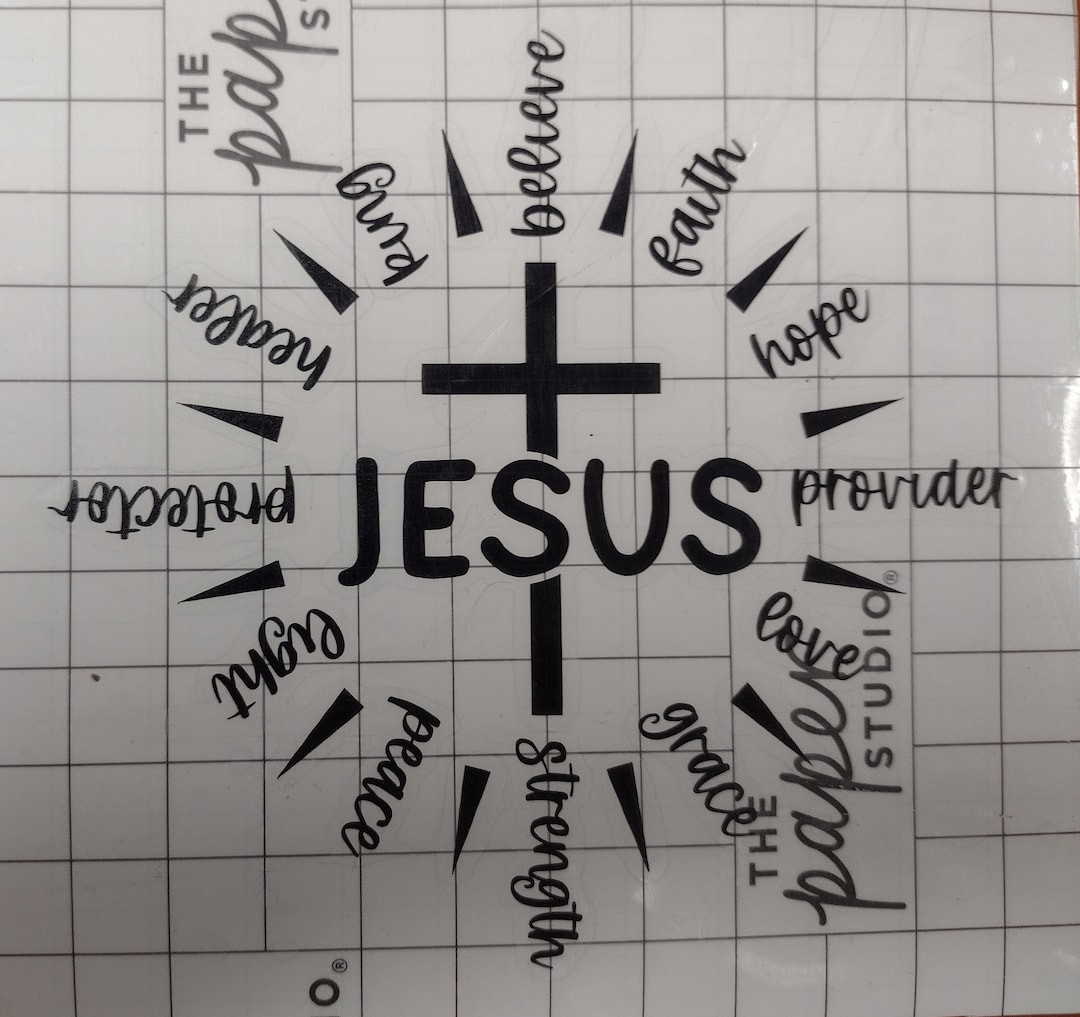 THE
pap
S
believe
faith
hope
provider
love
grace
strength
peace
light
protector
healer
king
JESUS
THE
paper
STUDIO®
O®